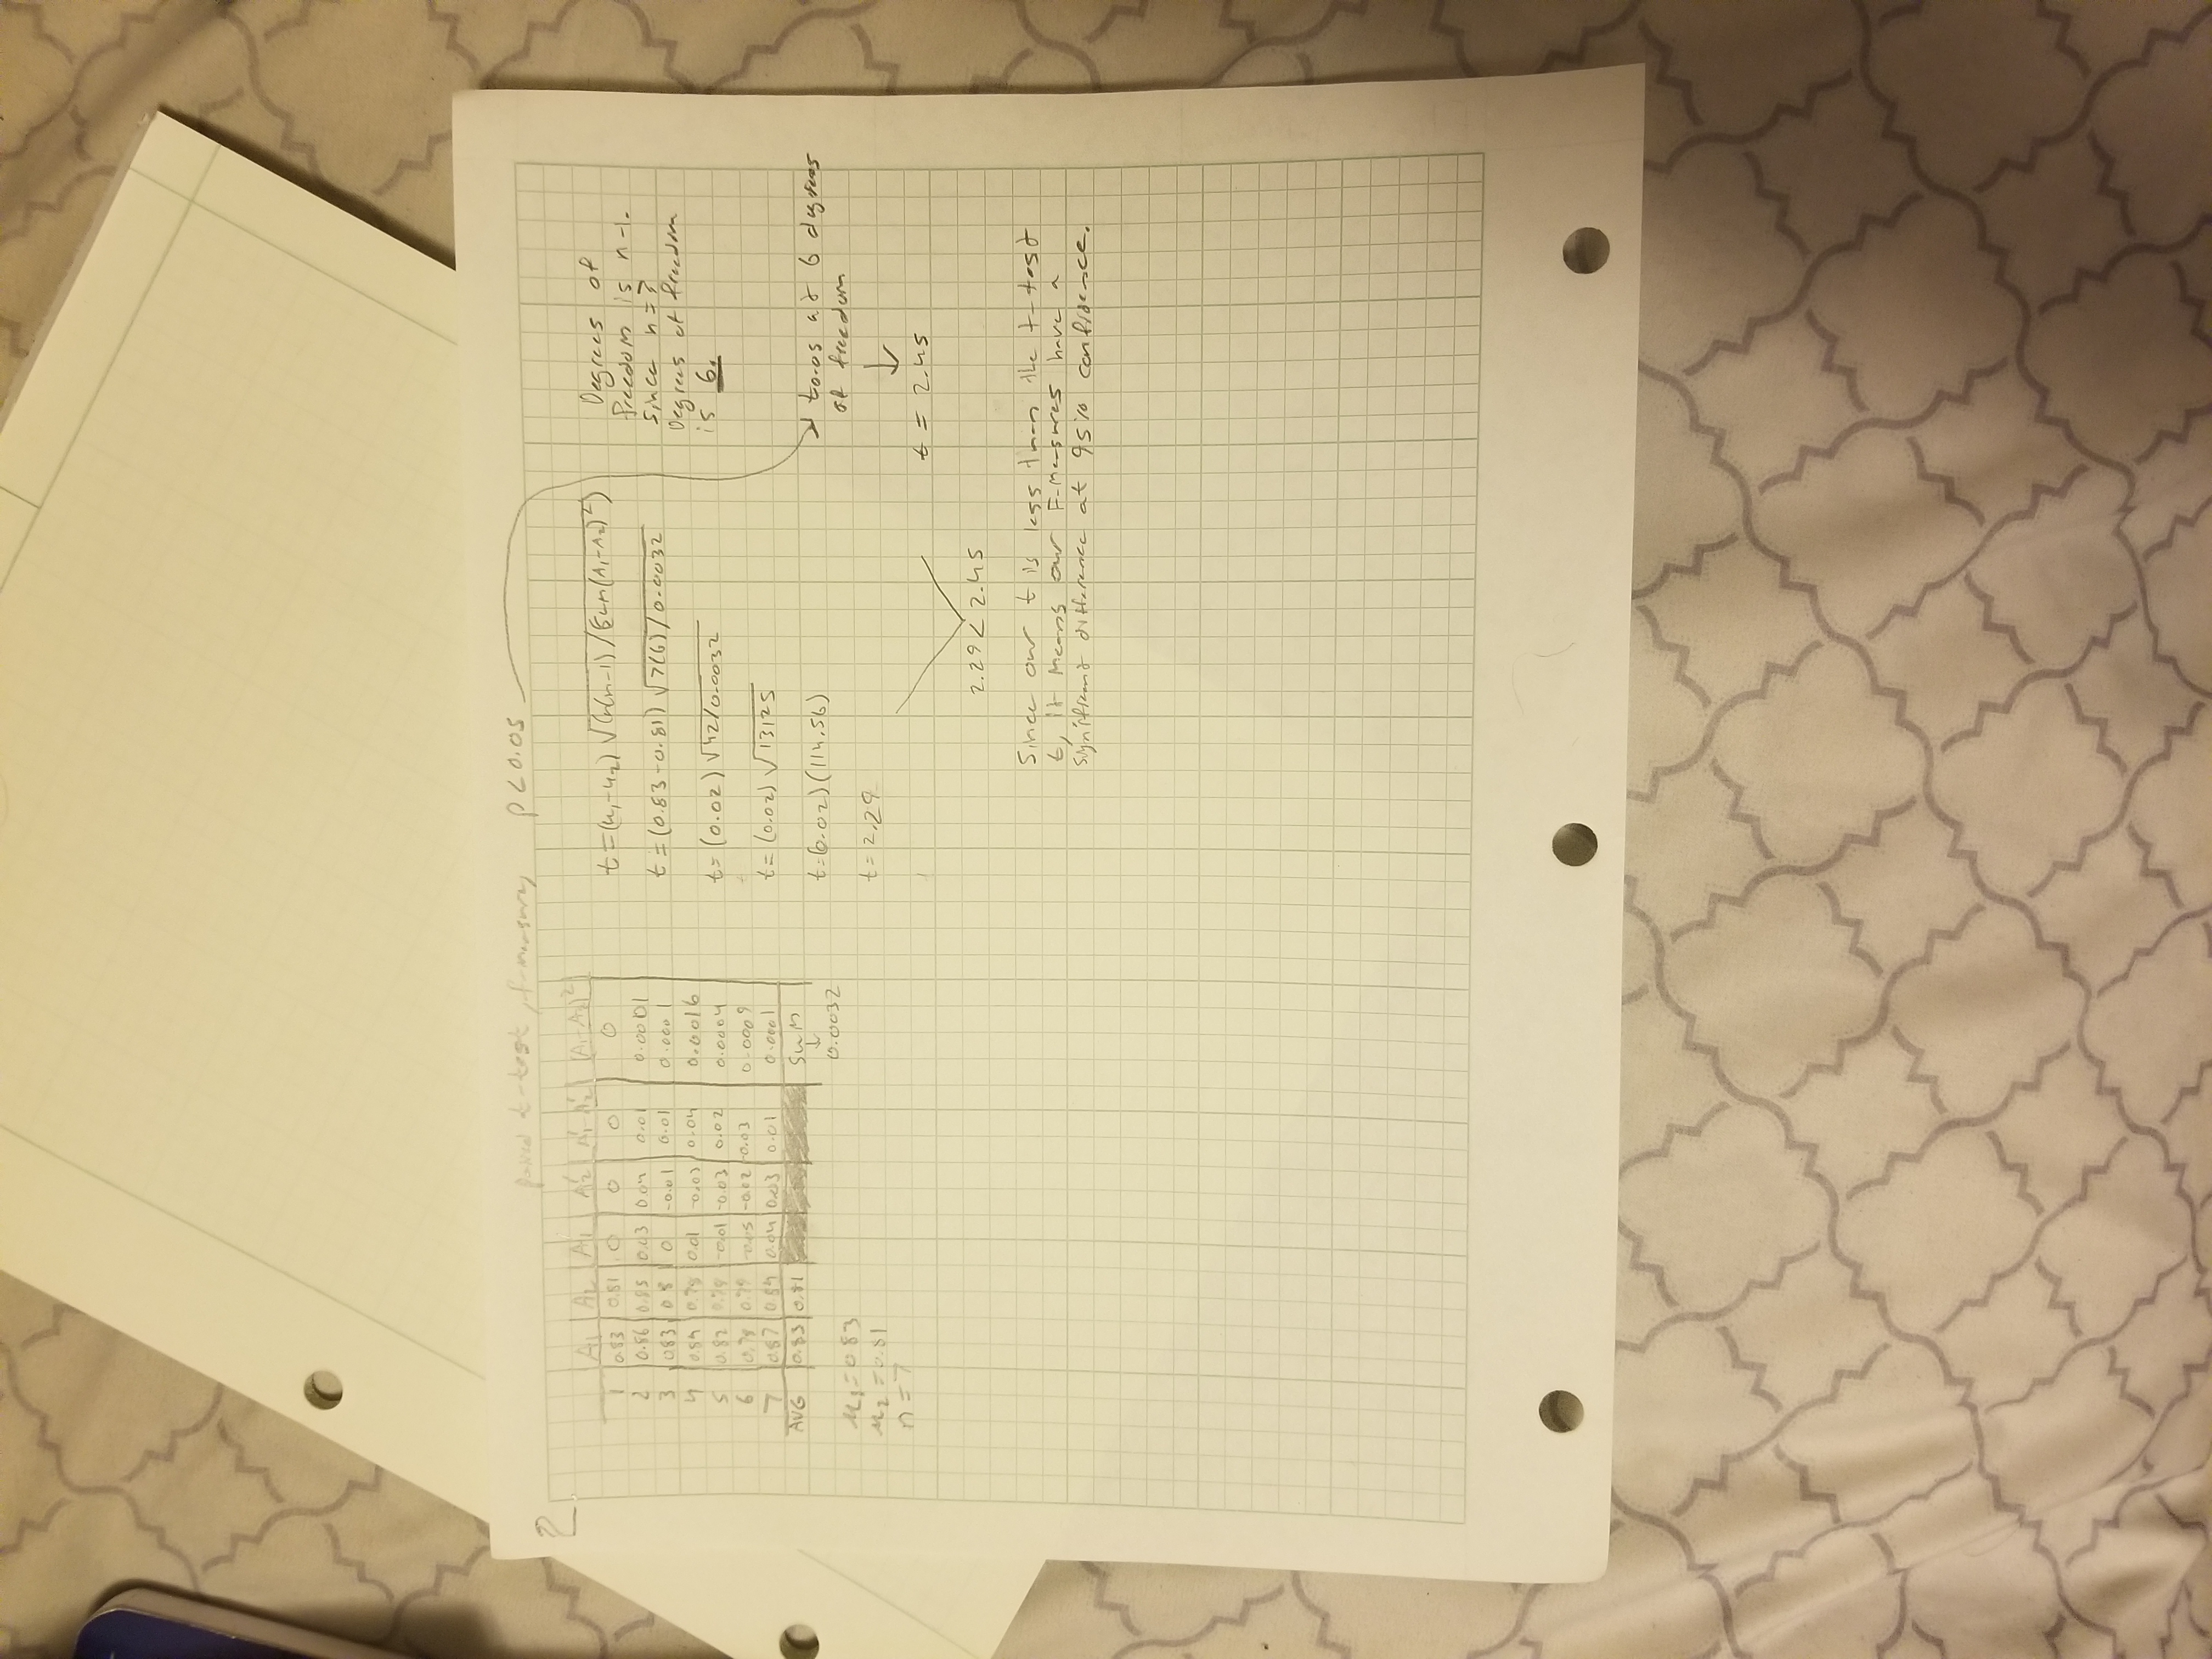 2
paired t-test, f-measure, p<0.05
A₁ A₂ A₁' A₂' A₁'-A₂' (A₁-A₂)²
1 0.83 0.81 0 0 0 0
2 0.86 0.85 0.03 0.04 0.01 0.0001
3 0.83 0.8 0 -0.01 0.01 0.0001
4 0.84 0.78 0.01 -0.03 0.04 0.0016
5 0.82 0.78 -0.01 -0.03 0.02 0.0004
6 0.78 0.79 -0.05 -0.02 -0.03 0.0009
7 0.87 0.84 0.04 0.03 0.01 0.0001
AVG 0.83 0.81 SUM
↓
0.0032
μ₁=0.83
μ₂=0.81
n=7
t=(μ₁-μ₂)√(n(n-1)/Sum(A₁-A₂)²)
t=(0.83-0.81)√7(6)/0.0032
t=(0.02)√42/0.0032
t=(0.02)√13125
t=(0.02)(114.56)
t=2.29
Degrees of
freedom is n-1.
Since n=7
Degrees of freedom
is 6.
t0.05 at 6 degrees
of freedom
↓
t = 2.45
2.29 < 2.45
Since our t is less than the t-test
t, it means our F-measures have a
significant difference at 95% confidence.